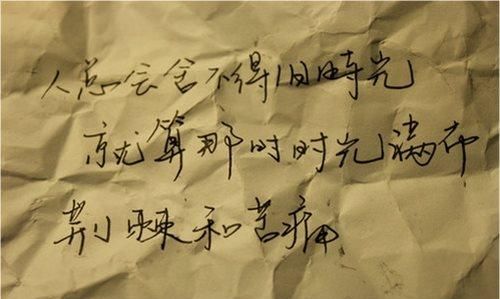 人总会舍不得旧時光
就算那时时光满布
荆棘和苦痛